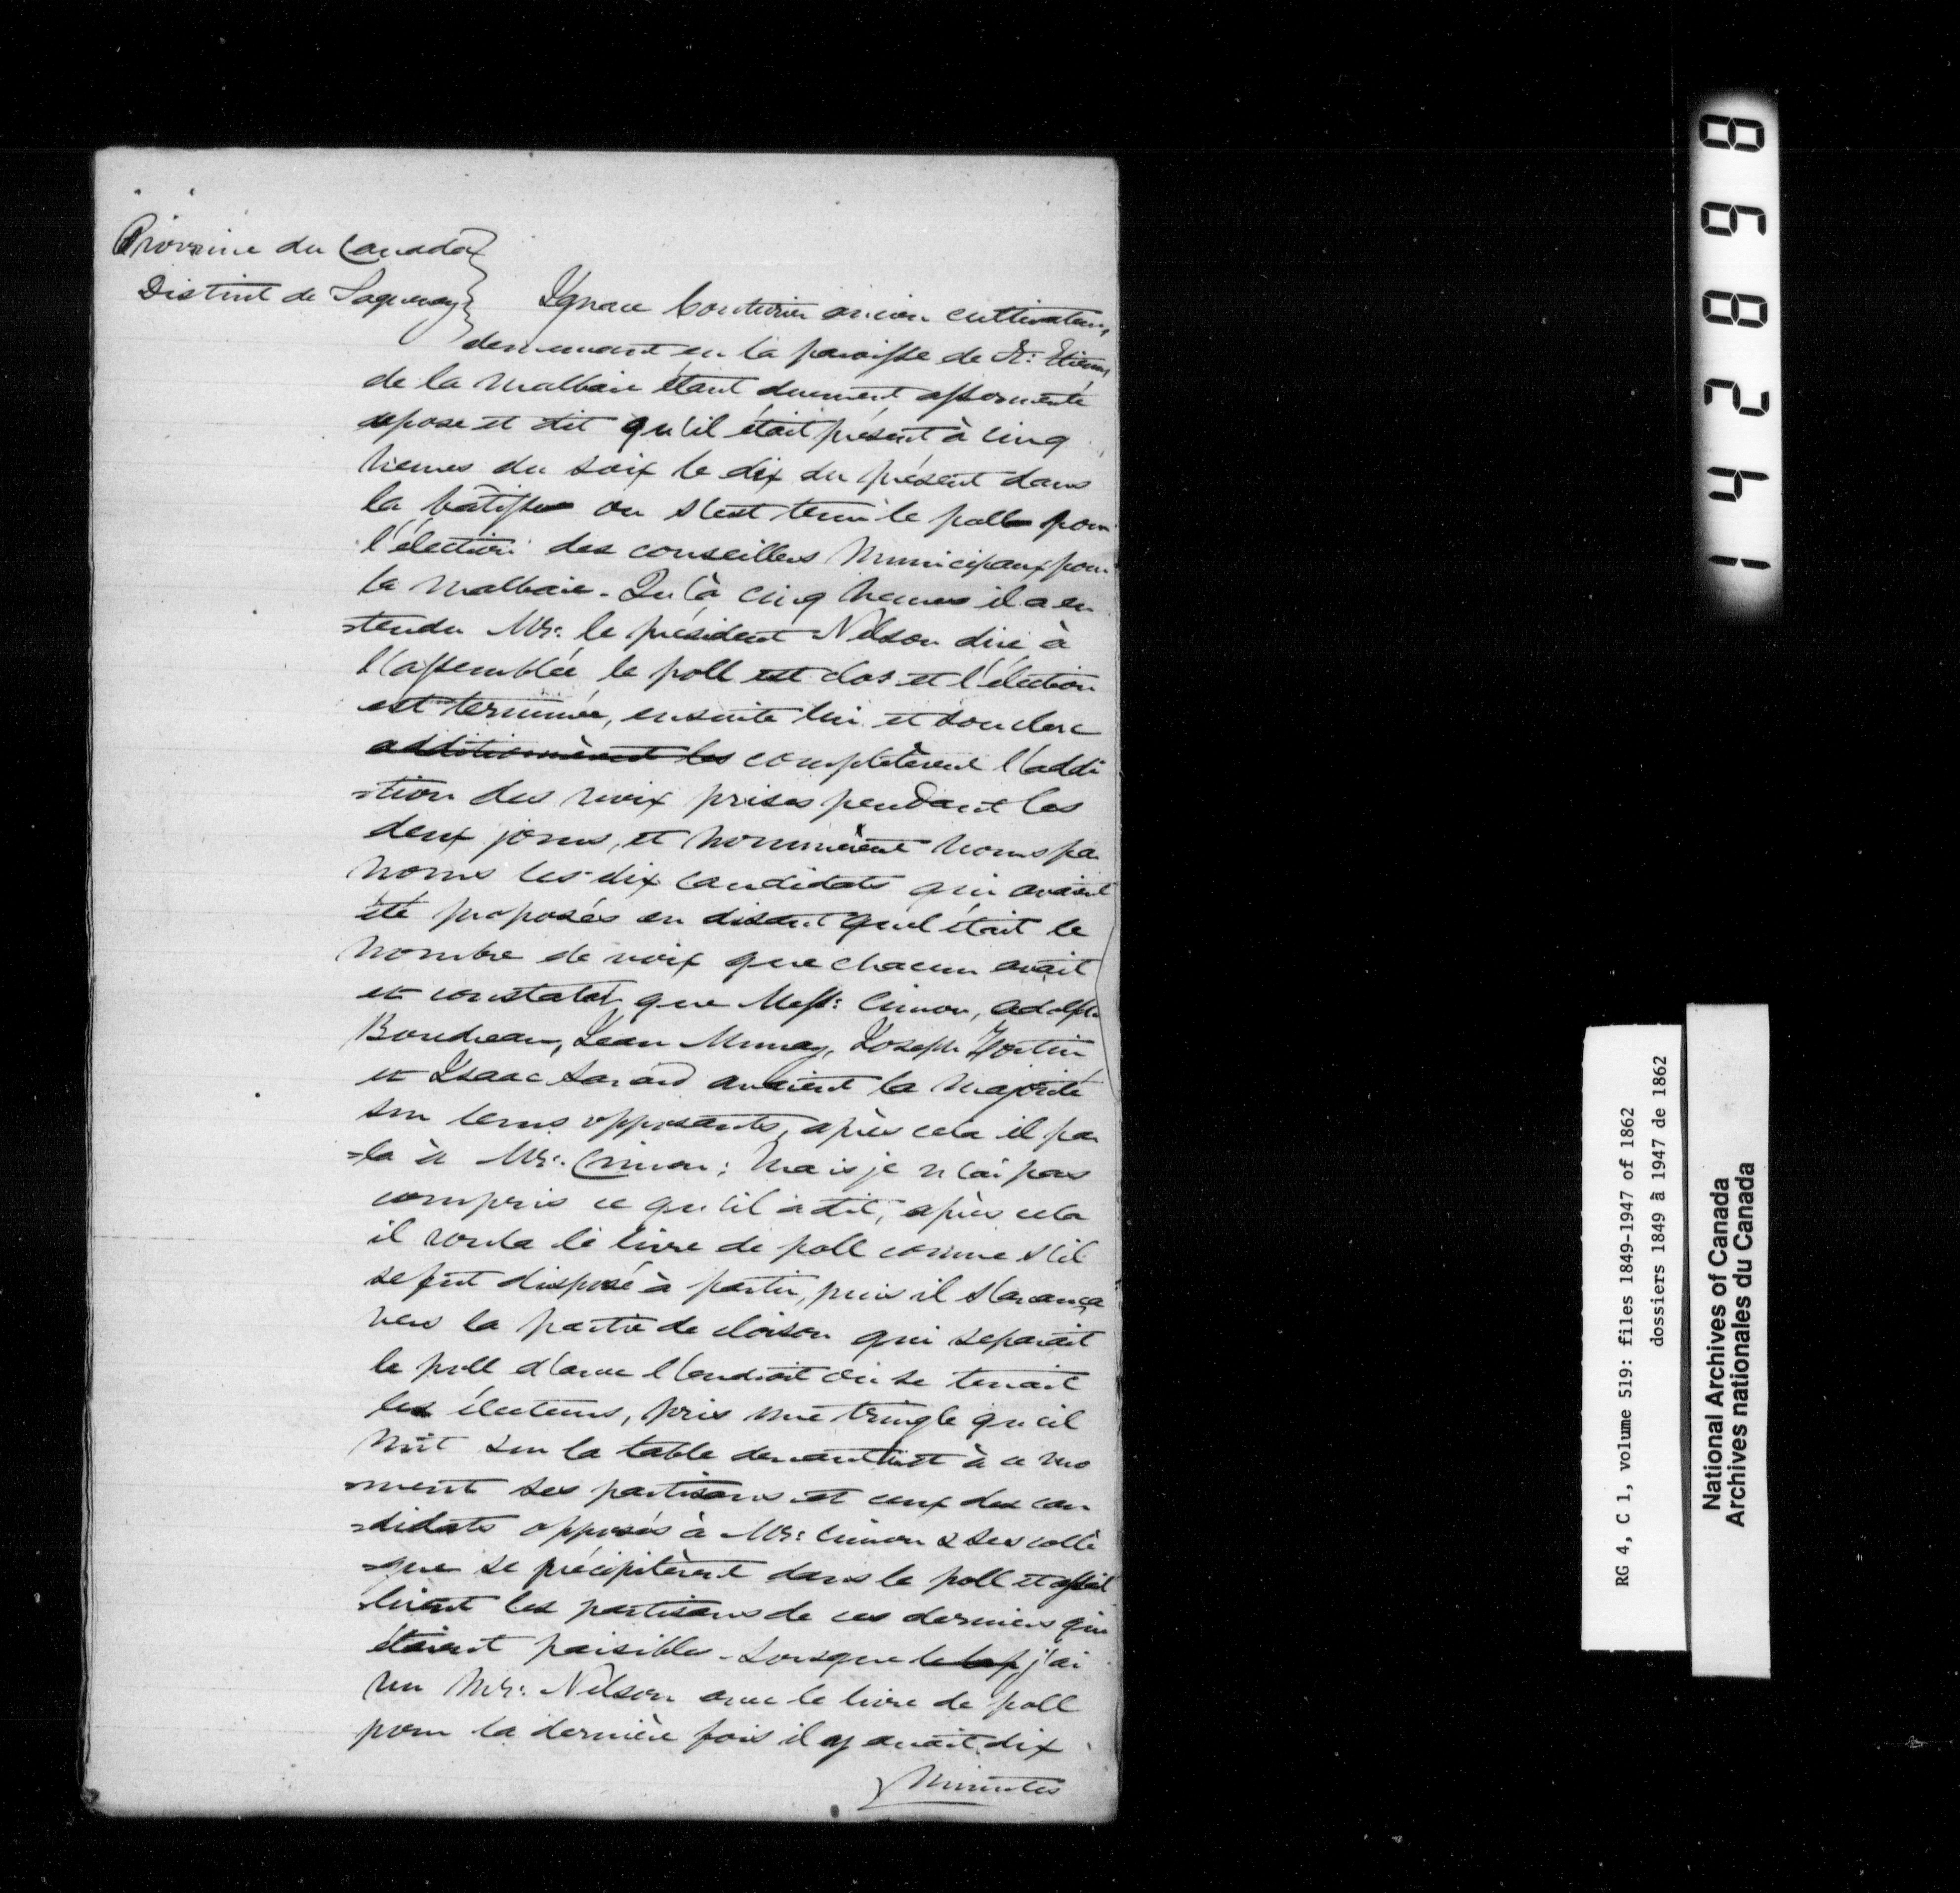 Province du Canada
District de Saguenay
Ignace Couturier ancien cultivateur,
demeurant en la paroisse de St: Etienne
de la Malbaie étant duement assermenté
depose et dit qu'il était présent à cinq
heures du soir le dix du présent dans
la bâtisse ou s'est tenu le poll pour
l'élection des conseillers Municipaux pour
la Malbaie. Qu'à cinq heures il a en
=tendu Mr: le président Nelson dire à
l'assemblée le poll est clos et l'élection
est terminée, ensuite lui et son clerc
additionnèrent les complétèrent l'addi
=tion des voix prises pendant les
deux jours, et nommèrent noms par
noms les dix candidats qui avaient
été proposés en disant quel était le
nombre de voix que chacun avait
et constatat que Mess: Cimon, Adolphe
Boudreau, Jean Murray, Joseph Fortin
et Isaac Savard avaient la majorité
sur leurs opposants, après cela il par
=la à Mr: Cimon; mais je n'ai pas
compris ce qu'il a dit, après cela
il roula le livre de poll comme s'il
se fut disposé à partir, puis il s'avança
vers la partie de cloison qui separait
le poll d'avec l'endroit où se tenait
les électeurs, pris une tringle qu'il
mit sur la table devant lui et à ce mo
=ment ses partisans et ceux des can
=didats opposés à Mr: Cimon & ses collè
=gue se précipitèrent dans le poll et assail
=lirent les partisans de ces derniers qui
étaient paisibles. Lorsque j'ai
vu Mr: Nelson avec le livre de poll
pour la dernière fois il y avait dix
Minutes
1 4 2 8 9 8
RG 4, C 1, volume 519: files 1849-1947 of 1862
dossiers 1849 à 1947 de 1862
National Archives of Canada
Archives nationales du Canada